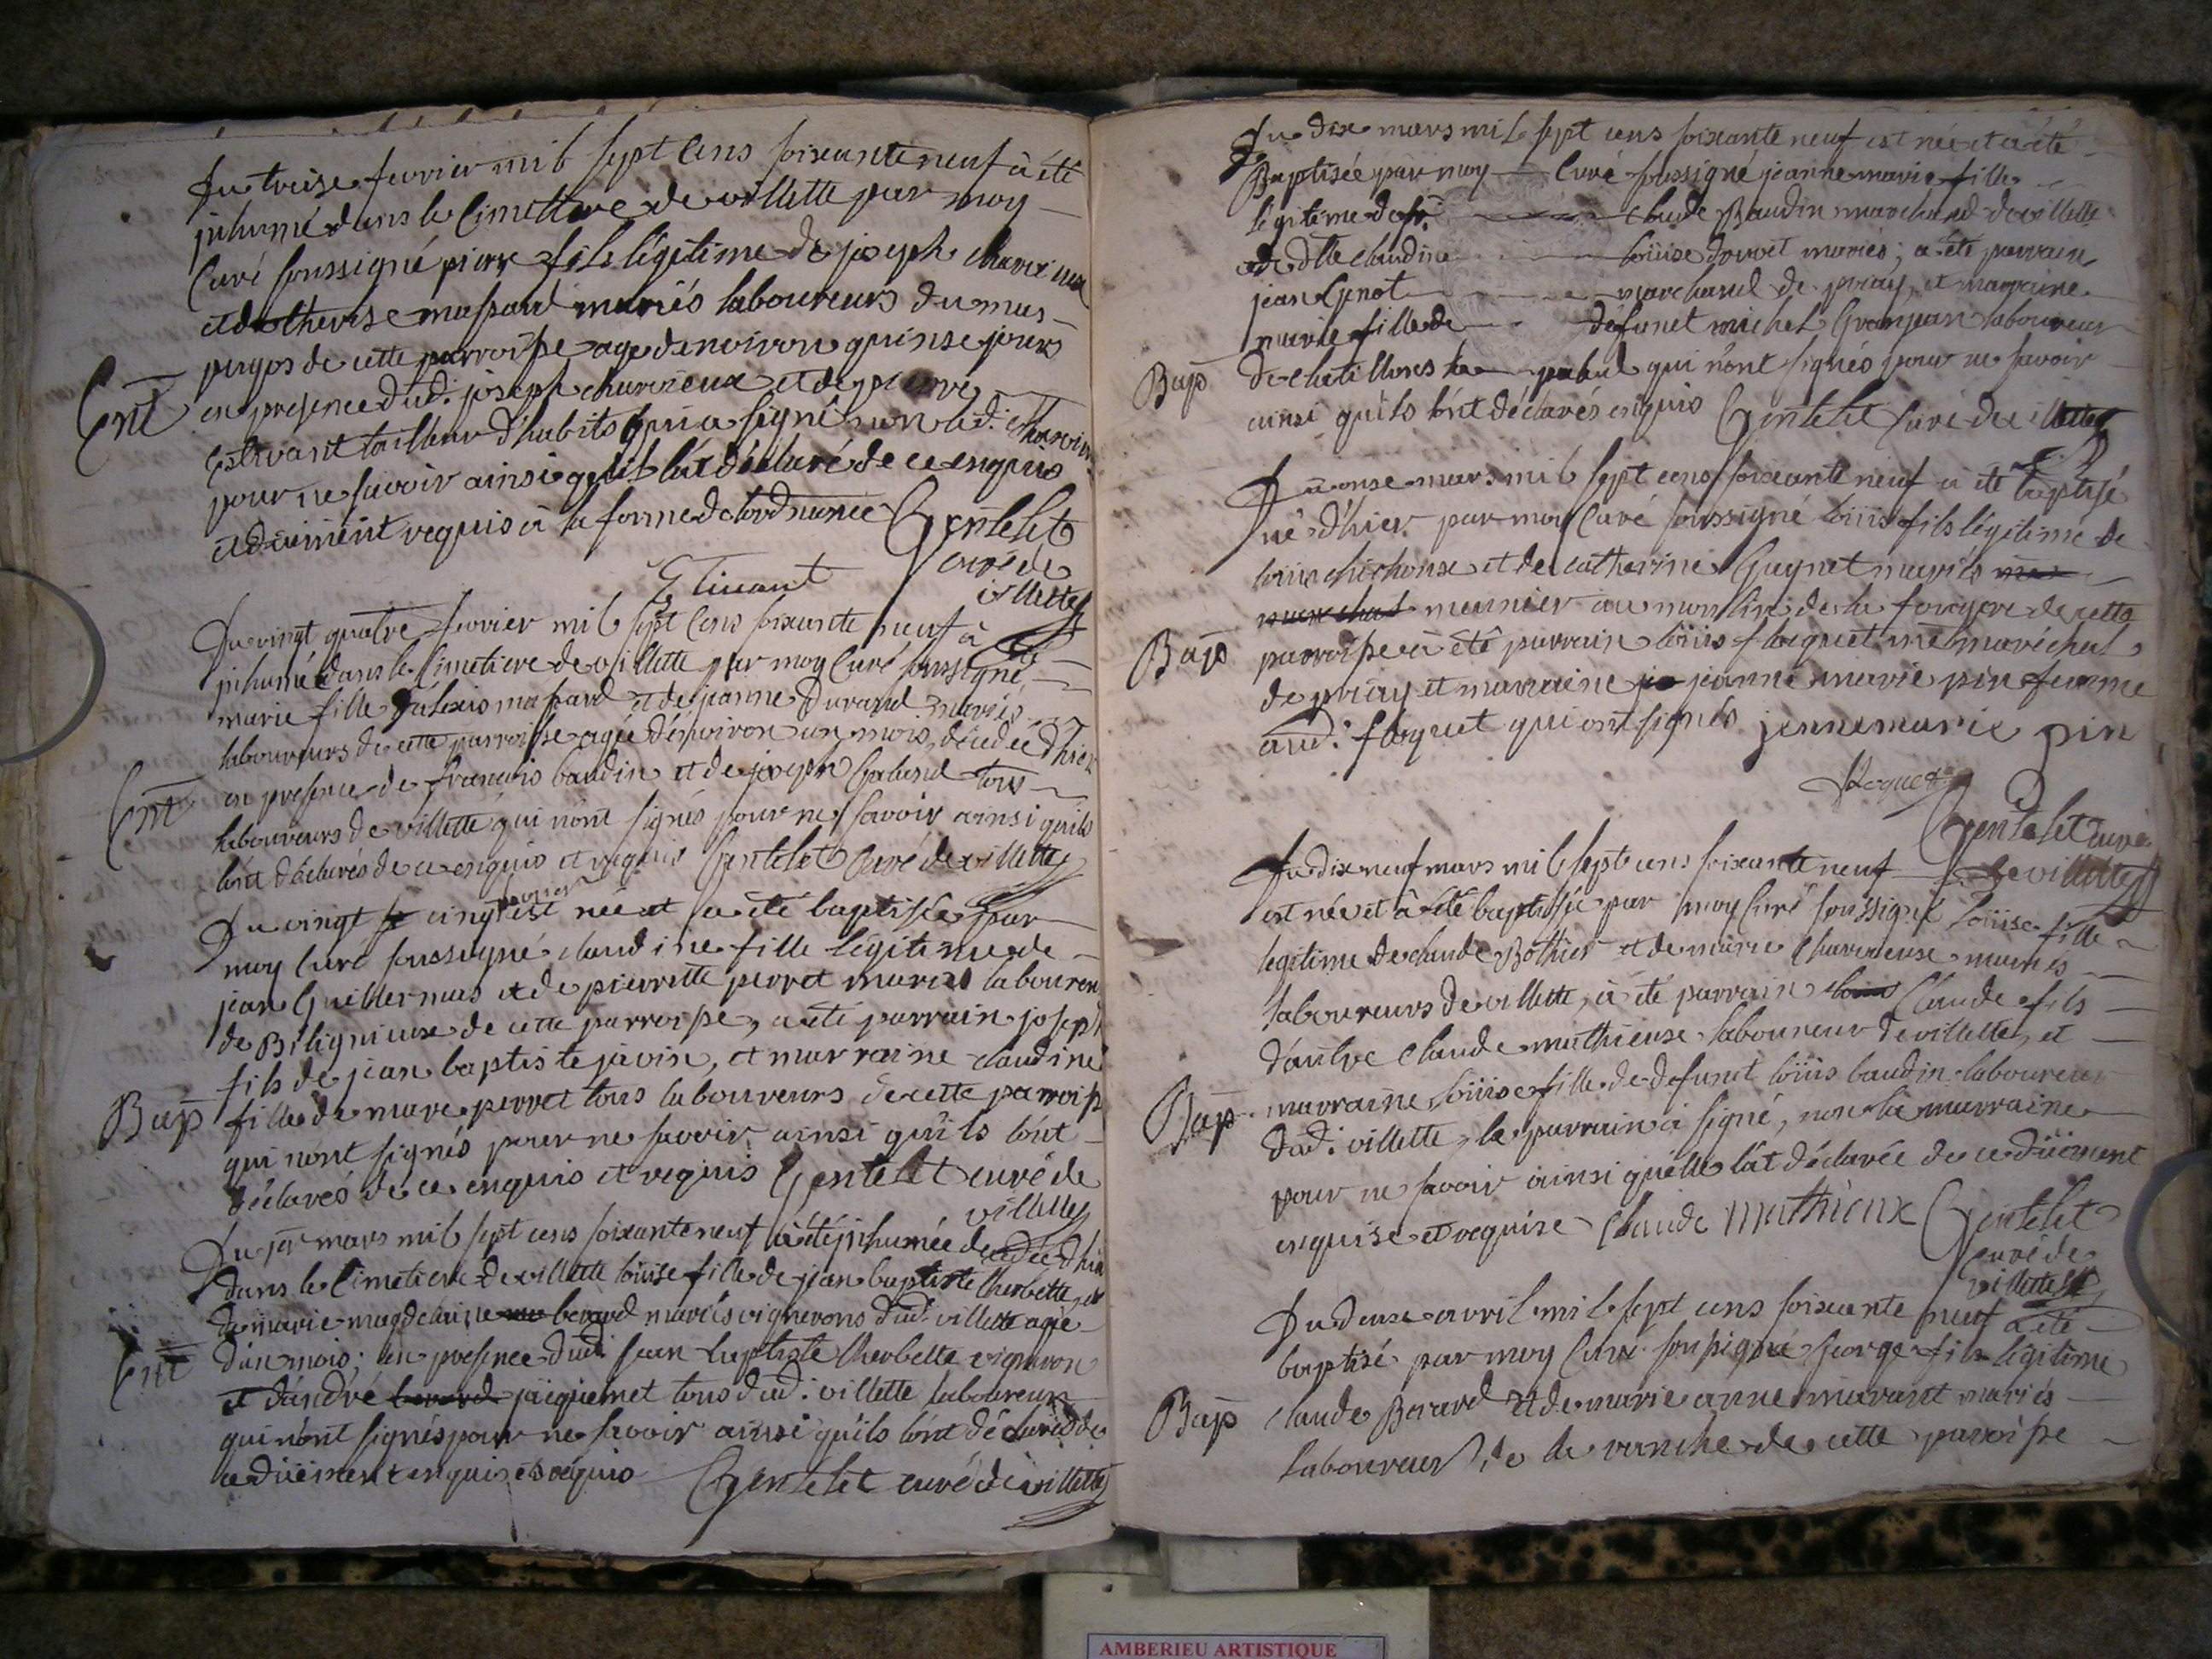 Du treise fevrier mil sept cens soixante neuf à été
inhumé dans le Cimettiere de villette par moy
Curé soussigné pierre fils légitime de joseph charvieux
et de therese massard mariés laboureurs du mas
pergos de cette parroisse age denviron quinse jours
Ent
en presence dud. joseph charvieux et de pierre
Estivant tailleur d'habits qui a signé non led. charvieux
pour ne savoir ainsi qu'il l'at déclaré de ce enquis
et duëment requis à la forme de l'ordnance Gentelet
curé de
villette
Etivant
Du vingt quatre fevrier mil sept cens soixante neuf à été
inhumé dans le Cimetiere de villette par moy Curé soussigné
marie fille d'alexis massard et de jeanne durand mariés
laboureurs de cette parroisse agée d'énviron un mois, décedée d'hier
en presence de françois baudin et de joseph Galand tous
Ent
laboureurs de villette qui n'ont signés pour ne savoir ainsi quils
l'ont déclarés de ce enquis et requis Gentelet Curé de villette
Du vingt cinq fevrier est née et a été baptisée par
moy Curé soussigné claudine fille légitime de
jean Guillermas et de pierrette perret mariés laboureurs
de Bilignieux de cette parroisse, a été parrain joseph
fils de jean baptiste javix, et marraine claudine
Bap
fille de marc perret tous laboureurs de cette parroisse
qui n'ont signés pour ne savoir ainsi qu'ils l'ont
déclarés de ce enquis et requis Gentelet curé de
villette
Du jer mars mil sept cens soixante neuf a été inhumée decedée d'hier
dans le Cimetiere de villette loüise fille de jean baptiste therbette et
de marie magdelaine berard mariés vignerons dud. villette agée
Ent
d'un mois; en presence dud. jean baptiste therbette vigneron
et d'andré berard jacquemet tous dud. villette laboureurs
qui n'ont signés pour ne savoir ainsi qu'ils l'ont déclarés de
ce duëment enquis et requis Gentelet curé de villette
Du dix mars mil sept cens soixante neuf est née et a été
Baptisée par moy Curé soussigné jeanne marie fille
légitime de sr. claude Baudin marchand de villette
et de dlle claudine loüise douvet mariés; a été parrain
jean Genot marchand de priay, et marraine
marie fille de défunct michel Granjean laboureur
Bap
de chatillon la palud qui n'ont signés pour ne savoir
ainsi qu'ils l'ont déclarés enquis Gentelet Curé de villette
Du onse mars mil sept cens soixante neuf a été baptisé
né d'hier par moy Curé soussigné loüis fils légitime de
loüis chichoux et de catherine Guynet mariés
marechal meunier au moulin de la fougere de cette
Bap
parroisse a été parrain loüis floquet me maréchal
de priay et marraine jeanne marie pin femme
aud. floquet qui ont signés jennemarie pin
floquet
Gentelet curé
de villette
Du dix neuf mars mil sept cens soixante neuf
est née et à été baptisée par moy curé soussigné loüise fille
legitime de claude Bothier et de marie Charvieux mariés
laboureurs de villette, à été parrain Claude fils
d'autre Claude mathieux laboureur de villette, et
Bap
marraine loüise fille de defunct loüis baudin laboureur
dud. villette, le parrain à signé, non la marraine
pour ne savoir ainsi quélle l'at déclarée de ce duëment
enquise et requise Claude Mathieux Gentelet
curé de
villette
Du deux avril mil sept cens soixante neuf a été
baptisé par moy Curé soussigné George fils légitime
Bap
claude Berard et de marie anne marant mariés
laboureurs de la ranche de cette parroisse
AMBERIEU ARTISTIQUE